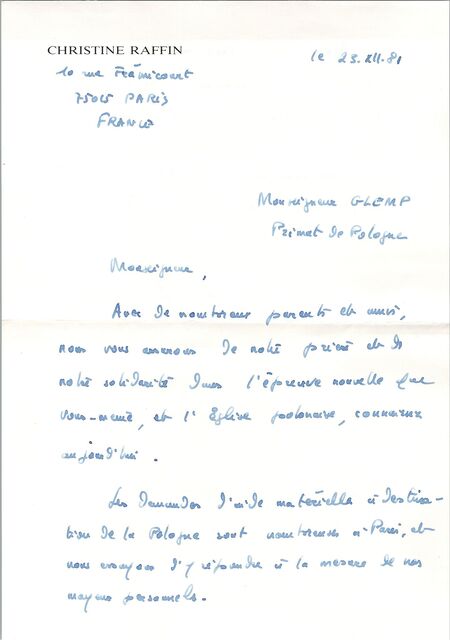 CHRISTINE RAFFIN
le 23.XII.81
10 rue Frémicourt
75015 PARIS
FRANCE
Monseigneur GLEMP
Primat de Pologne
Monseigneur,
Avec de nombreux parents et amis,
nous vous assurons de notre prière et de
notre solidarité dans l'épreuve nouvelle que
vous-même, et l'Église polonaise, connaissez
aujourd'hui.
Les demandes d'aide matérielle à destina-
tion de la Pologne sont nombreuses à Paris, et
nous essayons d'y répondre à la mesure de nos
moyens personnels.